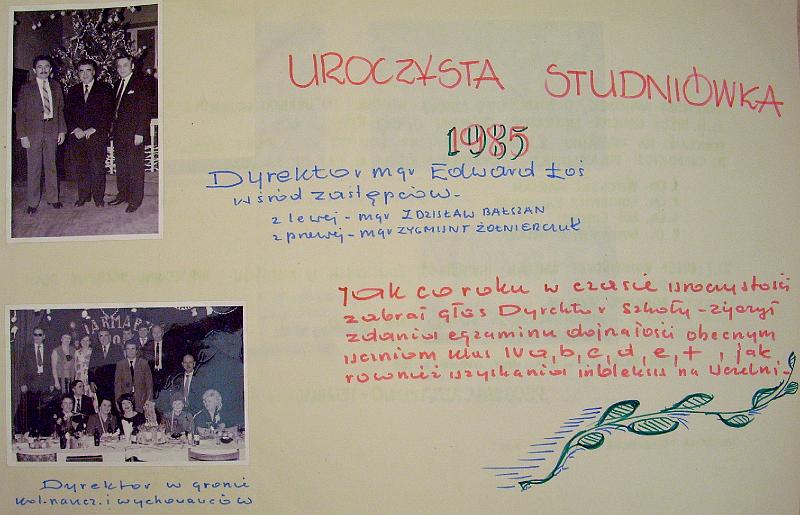 UROCZYSTA STUDNIÓWKA
1985
Dyrektor mgr Edward Łoś
wśród zastępców.
z lewej - mgr ZDZISŁAW BAŁSZAN
z prawej - mgr ZYGMUNT ŻOŁNIERCIUK
Jak co roku w czasie uroczystości
zabrał głos Dyrektor szkoły - życzył
zdania egzaminu dojrzałości obecnym
uczniom klas IV a, b, c, d, e, f, jak
również uzyskania indeksu na uczelni -
JARMARK
Dyrektor w gronie
naucz. i wychowawców